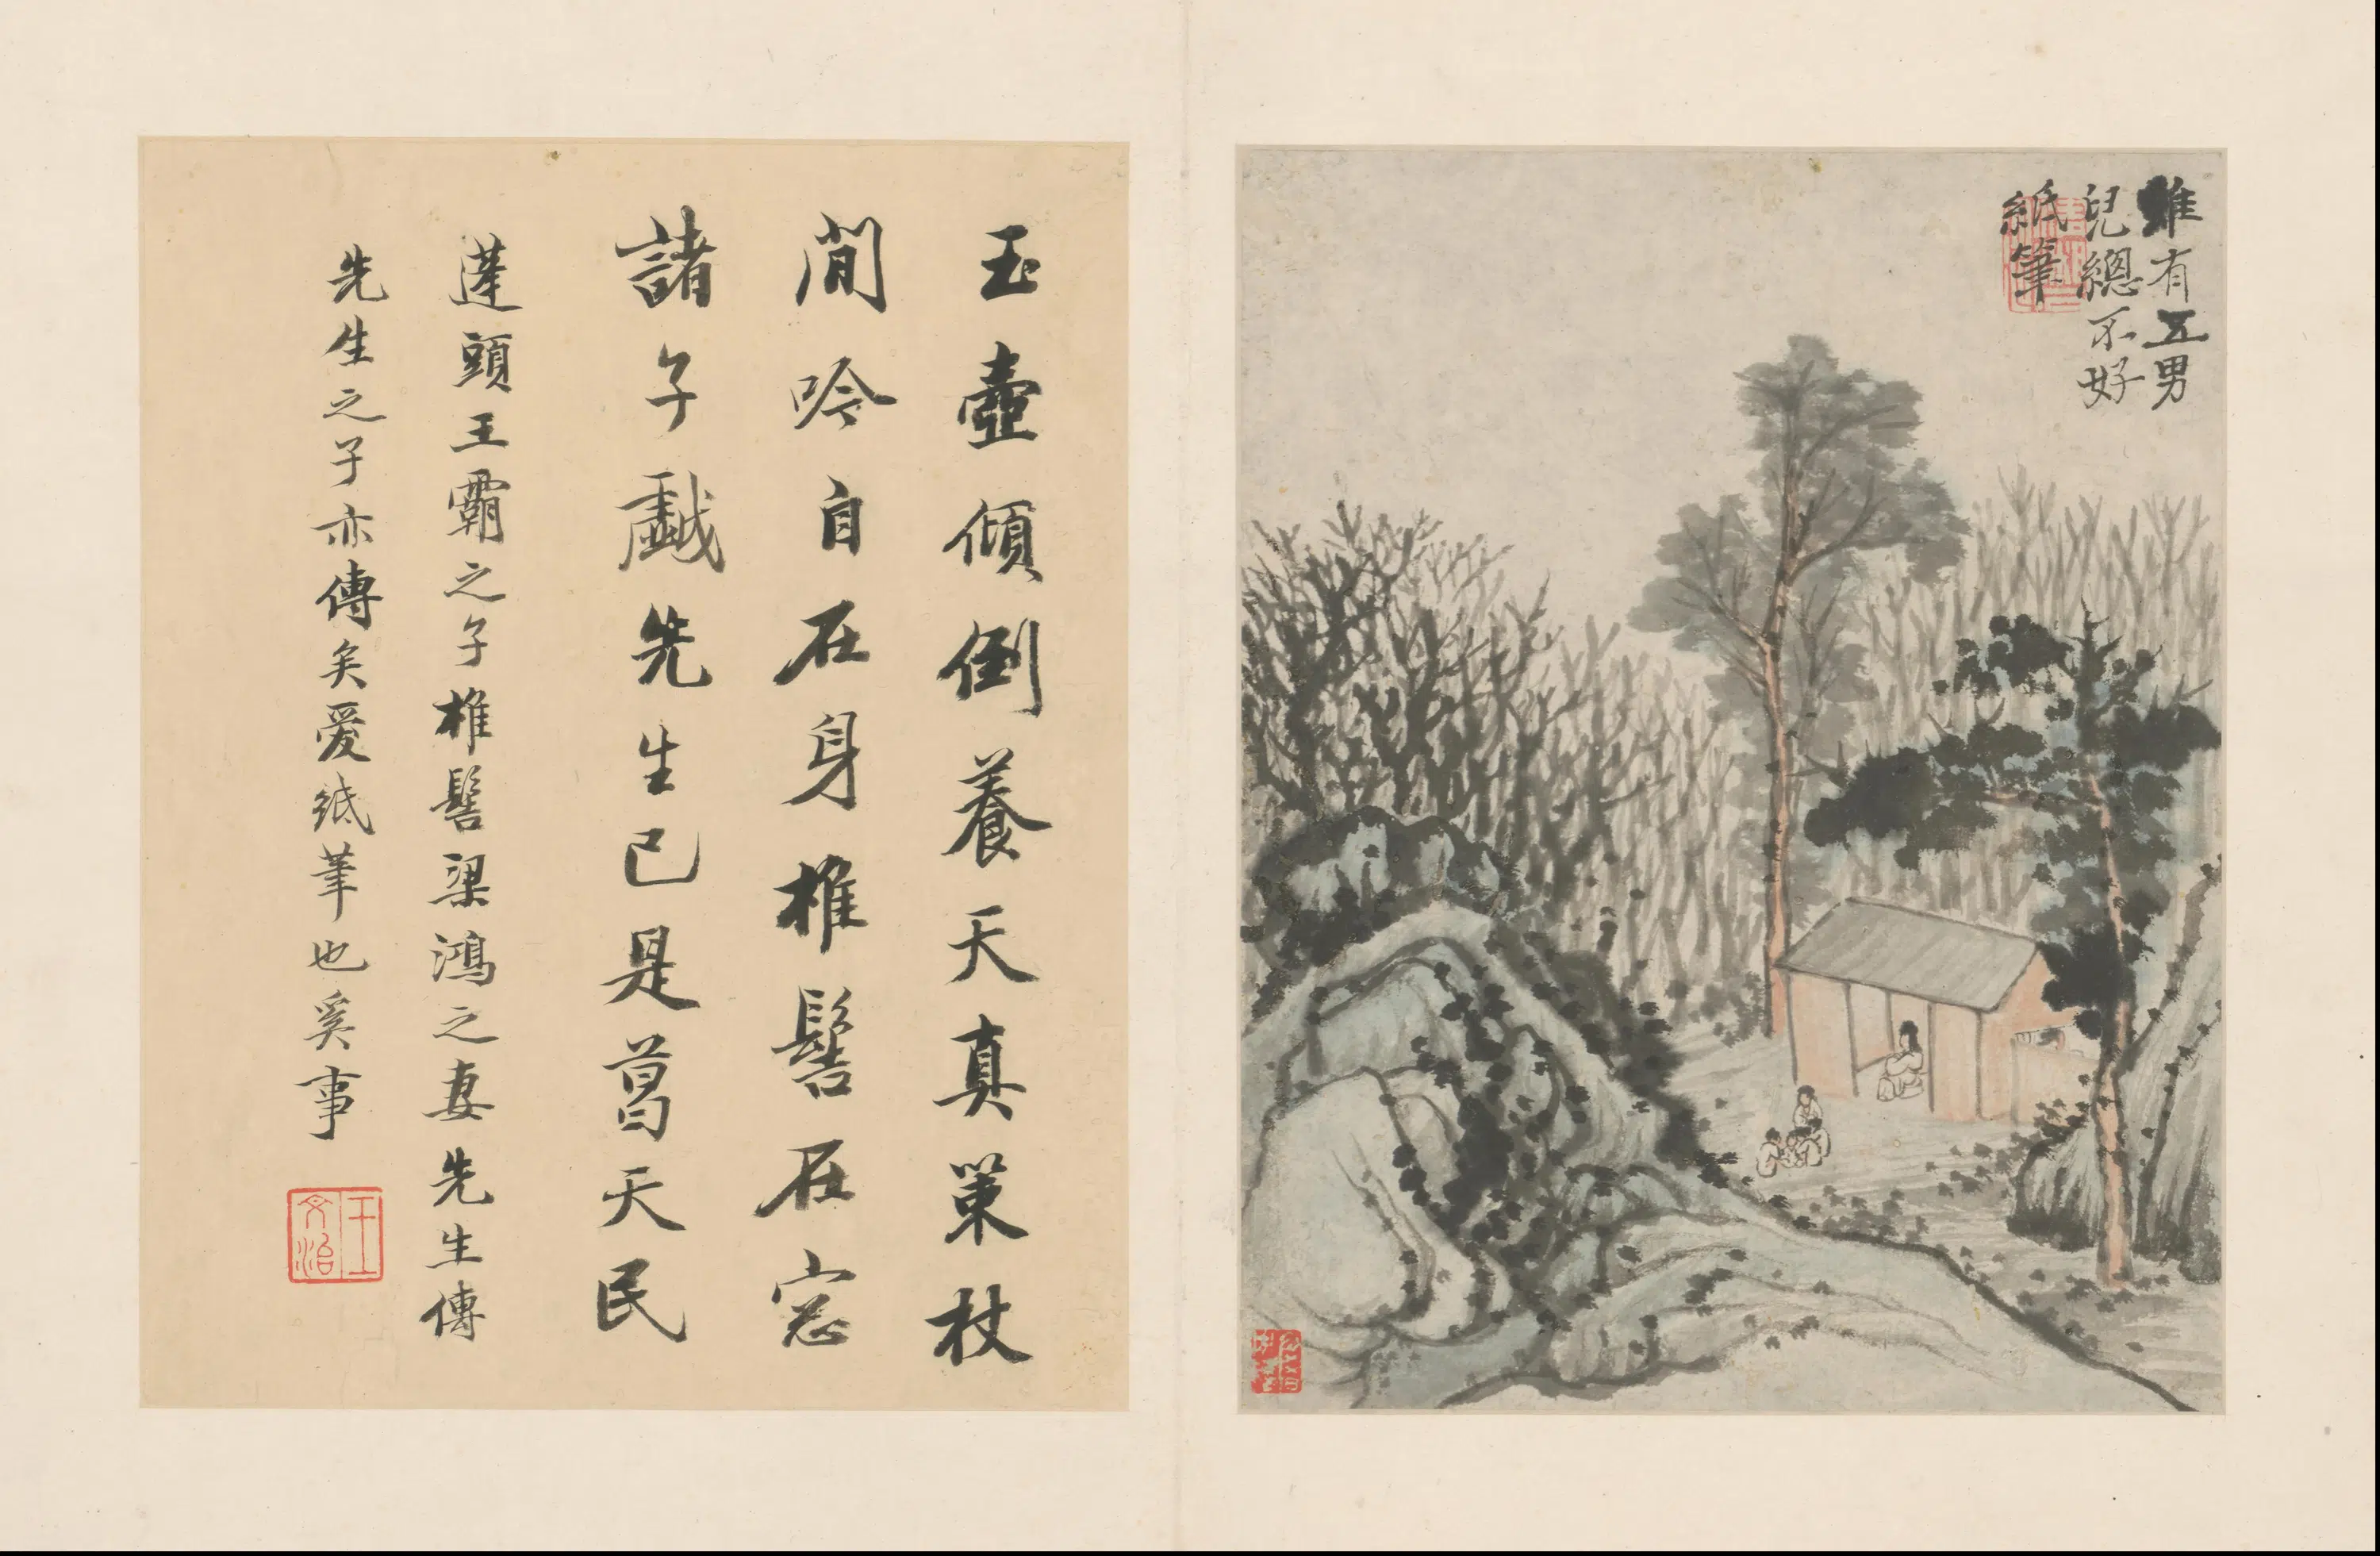 雖有五男
兒總不好
紙筆
玉壺傾倒養天真策杖
閒吟自在身椎髻在窓
諸子戲先生已是葛天民
蓬頭王霸之子椎髻梁鴻之妻先生傳
先生之子亦傳矣爱紙筆也奚事
王文治